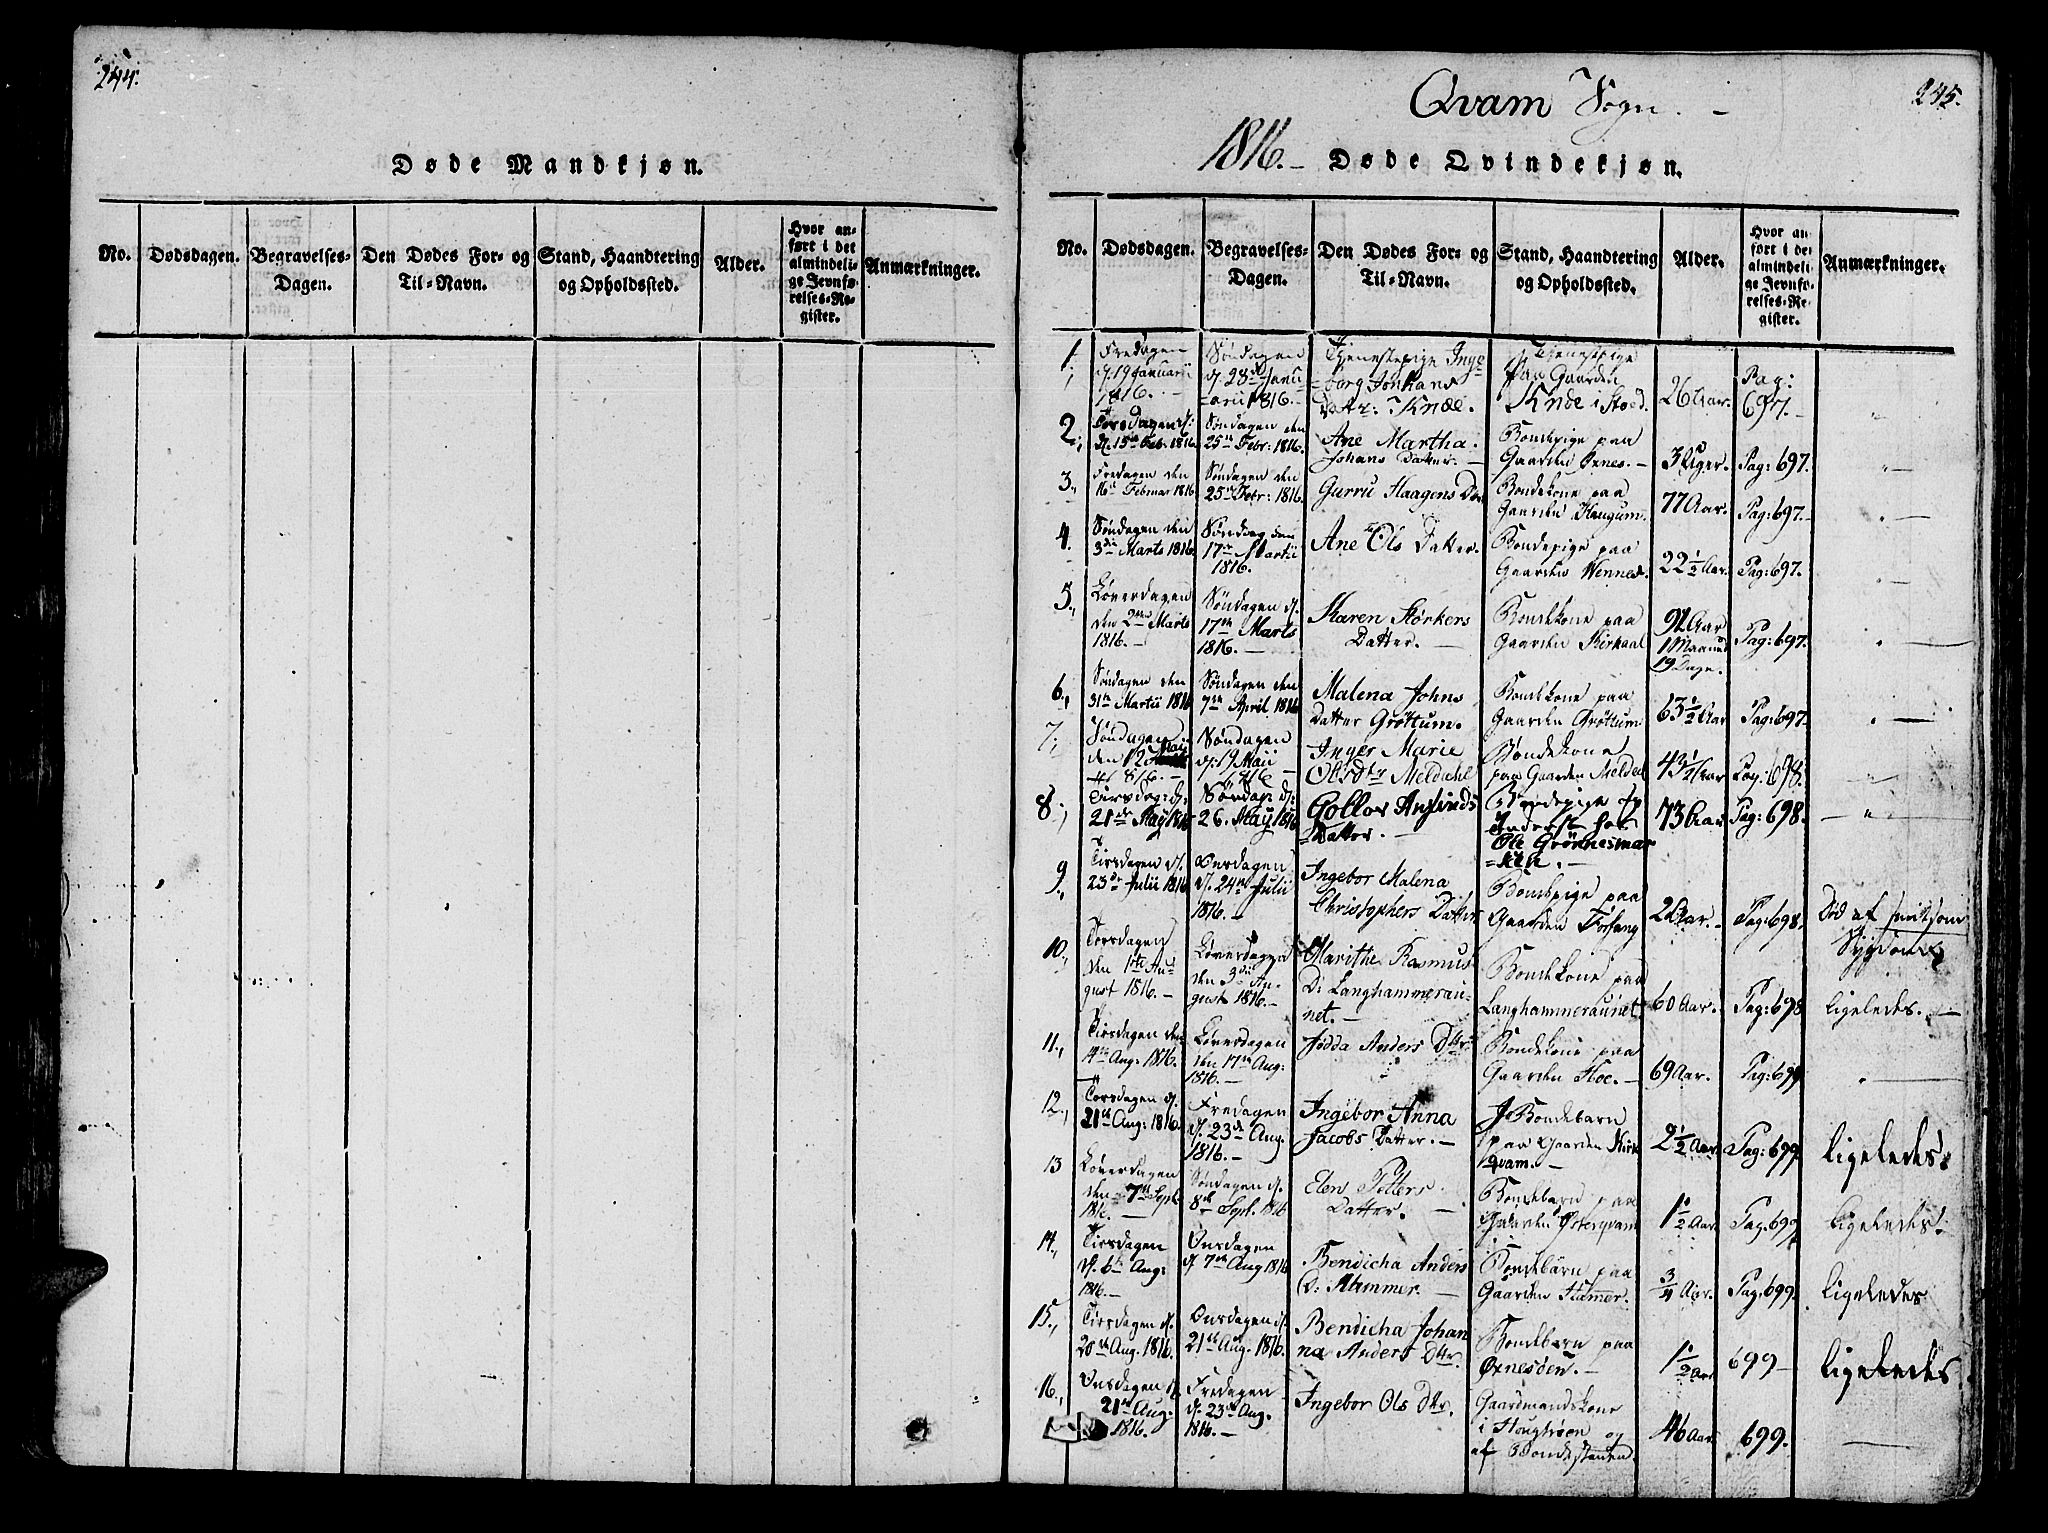 244.
Døde Mandkjøn.
No.
Dødsdagen.
Begravelses-
Dagen.
Den Dødes For- og
Til-Navn.
Stand, Haandtering
og Opholdssted.
Alder.
Hvor an-
ført i det
almindeli-
ge Jevnfø-
relses-Re-
gister.
Anmærkninger.
Qvam Sogn.
245.
1816.
Døde Qvindekjøn.
No.
Dødsdagen.
Begravelses-
Dagen.
Den Dødes For- og
Til-Navn.
Stand, Haandtering
og Opholdssted.
Alder.
Hvor an-
ført i det
almindeli-
ge Jevnfø-
relses-Re-
gister.
Anmærkninger.
1.
Fredagen
d. 19 Januarii
1816.
Søndagen
d. 28de Janu
arii 1816.
Tjenestepige Inge
borg Johans
Datr:
Tjenestepige
paa Gaarden
26 Aar.
Pag:
697.
2.
Torsdagen d:
d. 15de Febr. 1816.
Søndagen den
25de Febr: 1816.
Ane Martha
Johans Datter.
Bondepige paa
Gaarden Øxnes.
3 Uger.
Pag: 697.
3.
Fredagen den
16de Februar 1816
Søndagen den
25de Febr: 1816.
Gurru Haagens Dr
Bondekone paa
Gaarden Haugum.
77 Aar.
Pag: 697.
4.
Søndagen den
3die Marts 1816.
Søndag den
17de Martii
1816.
Ane Ols Datter.
Bondepige paa
Gaarden Wennes.
22 1/2 Aar.
Pag: 697.
5.
Løverdagen
den 2den Marts
1816.
Søndagen d.
17de Marts
1816.
Karen Størkers
Datter.
Bondekone paa
Gaarden
Aar
1 Maaned
19 Dage.
Pag: 697.
6.
Søndagen den
31te Martii 1816
Søndagen den
7de April 1816
Malena Johns
Datter Grøttum.
Bondekone paa
Gaarden Grøttum
63 1/2 Aar
Pag: 697.
7.
Søndagen
den 12 Maii
1816.
Søndagen
d: 19 Maii
1816
Inger Marie
Olsdtr
Bondekone
paa Gaarden
Pag: 698.
8.
Tirsdag: d:
21de May 1816
Søndag: d:
26. May 1816
Gollos
Datter.
Bondepige
Inderst hos
Ole Grønnesmar
ken.
73 Aar
Pag: 698.
9.
Tirsdagen d.
23de Julii 1816
Onsdagen
d. 24de Julii
1816.
Ingebor Malena
Christophers Datter
Bondepige paa
Gaarden Forfang
2 Aar.
Pag: 698.
Død af smitsom
Sygdom
10.
Torsdagen
den 1te Au
gust 1816.
Løverdagen
den 3die Au
gust 1816.
Marithe Rasmus
D: Langhammerau
net.
Bondekone paa
Langhammeraunet.
60 Aar.
Pag: 698
ligeledes.
11.
Tirsdagen den
14de Aug: 1816.
Løverdagen
den 17de Aug:
1816.
Jødda Anders Dttr
Bondekone paa
Gaarden Hoe.
69 Aar.
Pag: 699
12.
Torsdagen d.
21de Aug: 1816.
Fredagen
d. 23de Aug.
1816.
Ingebor Anna
Jacobs Datter.
Bondebarn
paa Gaarden Kirk
qvam.
2 1/2 Aar.
Pag: 699
ligeledes.
13
Løverdagen
den 7de Sept.
1816.
Søndagen d.
8de Sept. 1816
Elen Petters
Datter.
Bondebarn paa
Gaarden Østerqvam
1 1/2 Aar.
Pag. 699
ligeledes.
14.
Tirsdagen
d. 6te Aug:
1816.
Onsdagen
d. 7de Aug 1816
Bendicha Anders
D: Hammer.
Bondebarn paa
Gaarden Hamer.
3/4 Aar.
Pag. 699.
ligeledes
15.
Tirsdagen d.
20de Aug. 1816.
Onsdagen d.
21de Aug. 1816.
Bendicha Johan
na Anders Dttr.
Bondebarn paa
Øxnesøen.
1 1/2 Aar
699
ligeledes
16.
Onsdagen d.
21de Aug.
1816.
Fredagen
d. 23de Aug.
1816.
Ingebor Ols Dttr.
Gaardmandskone
i Hougtrøen og
af Bondestanden.
46 Aar.
699.